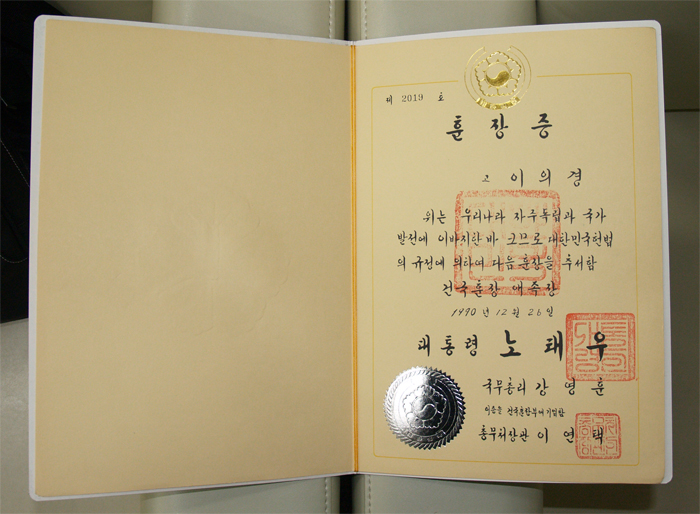 제 2019 호
훈장증
고 이의경
위는 우리나라 자주독립과 국가
발전에 이바지한바 크므로 대한민국헌법
의 규정에 의하여 다음 훈장을 추서함
건국훈장 애족장
1990년 12월 26일
대통령 노태우
국무총리 강영훈
이증을 건국훈장부에 기입함
총무처장관 이연택